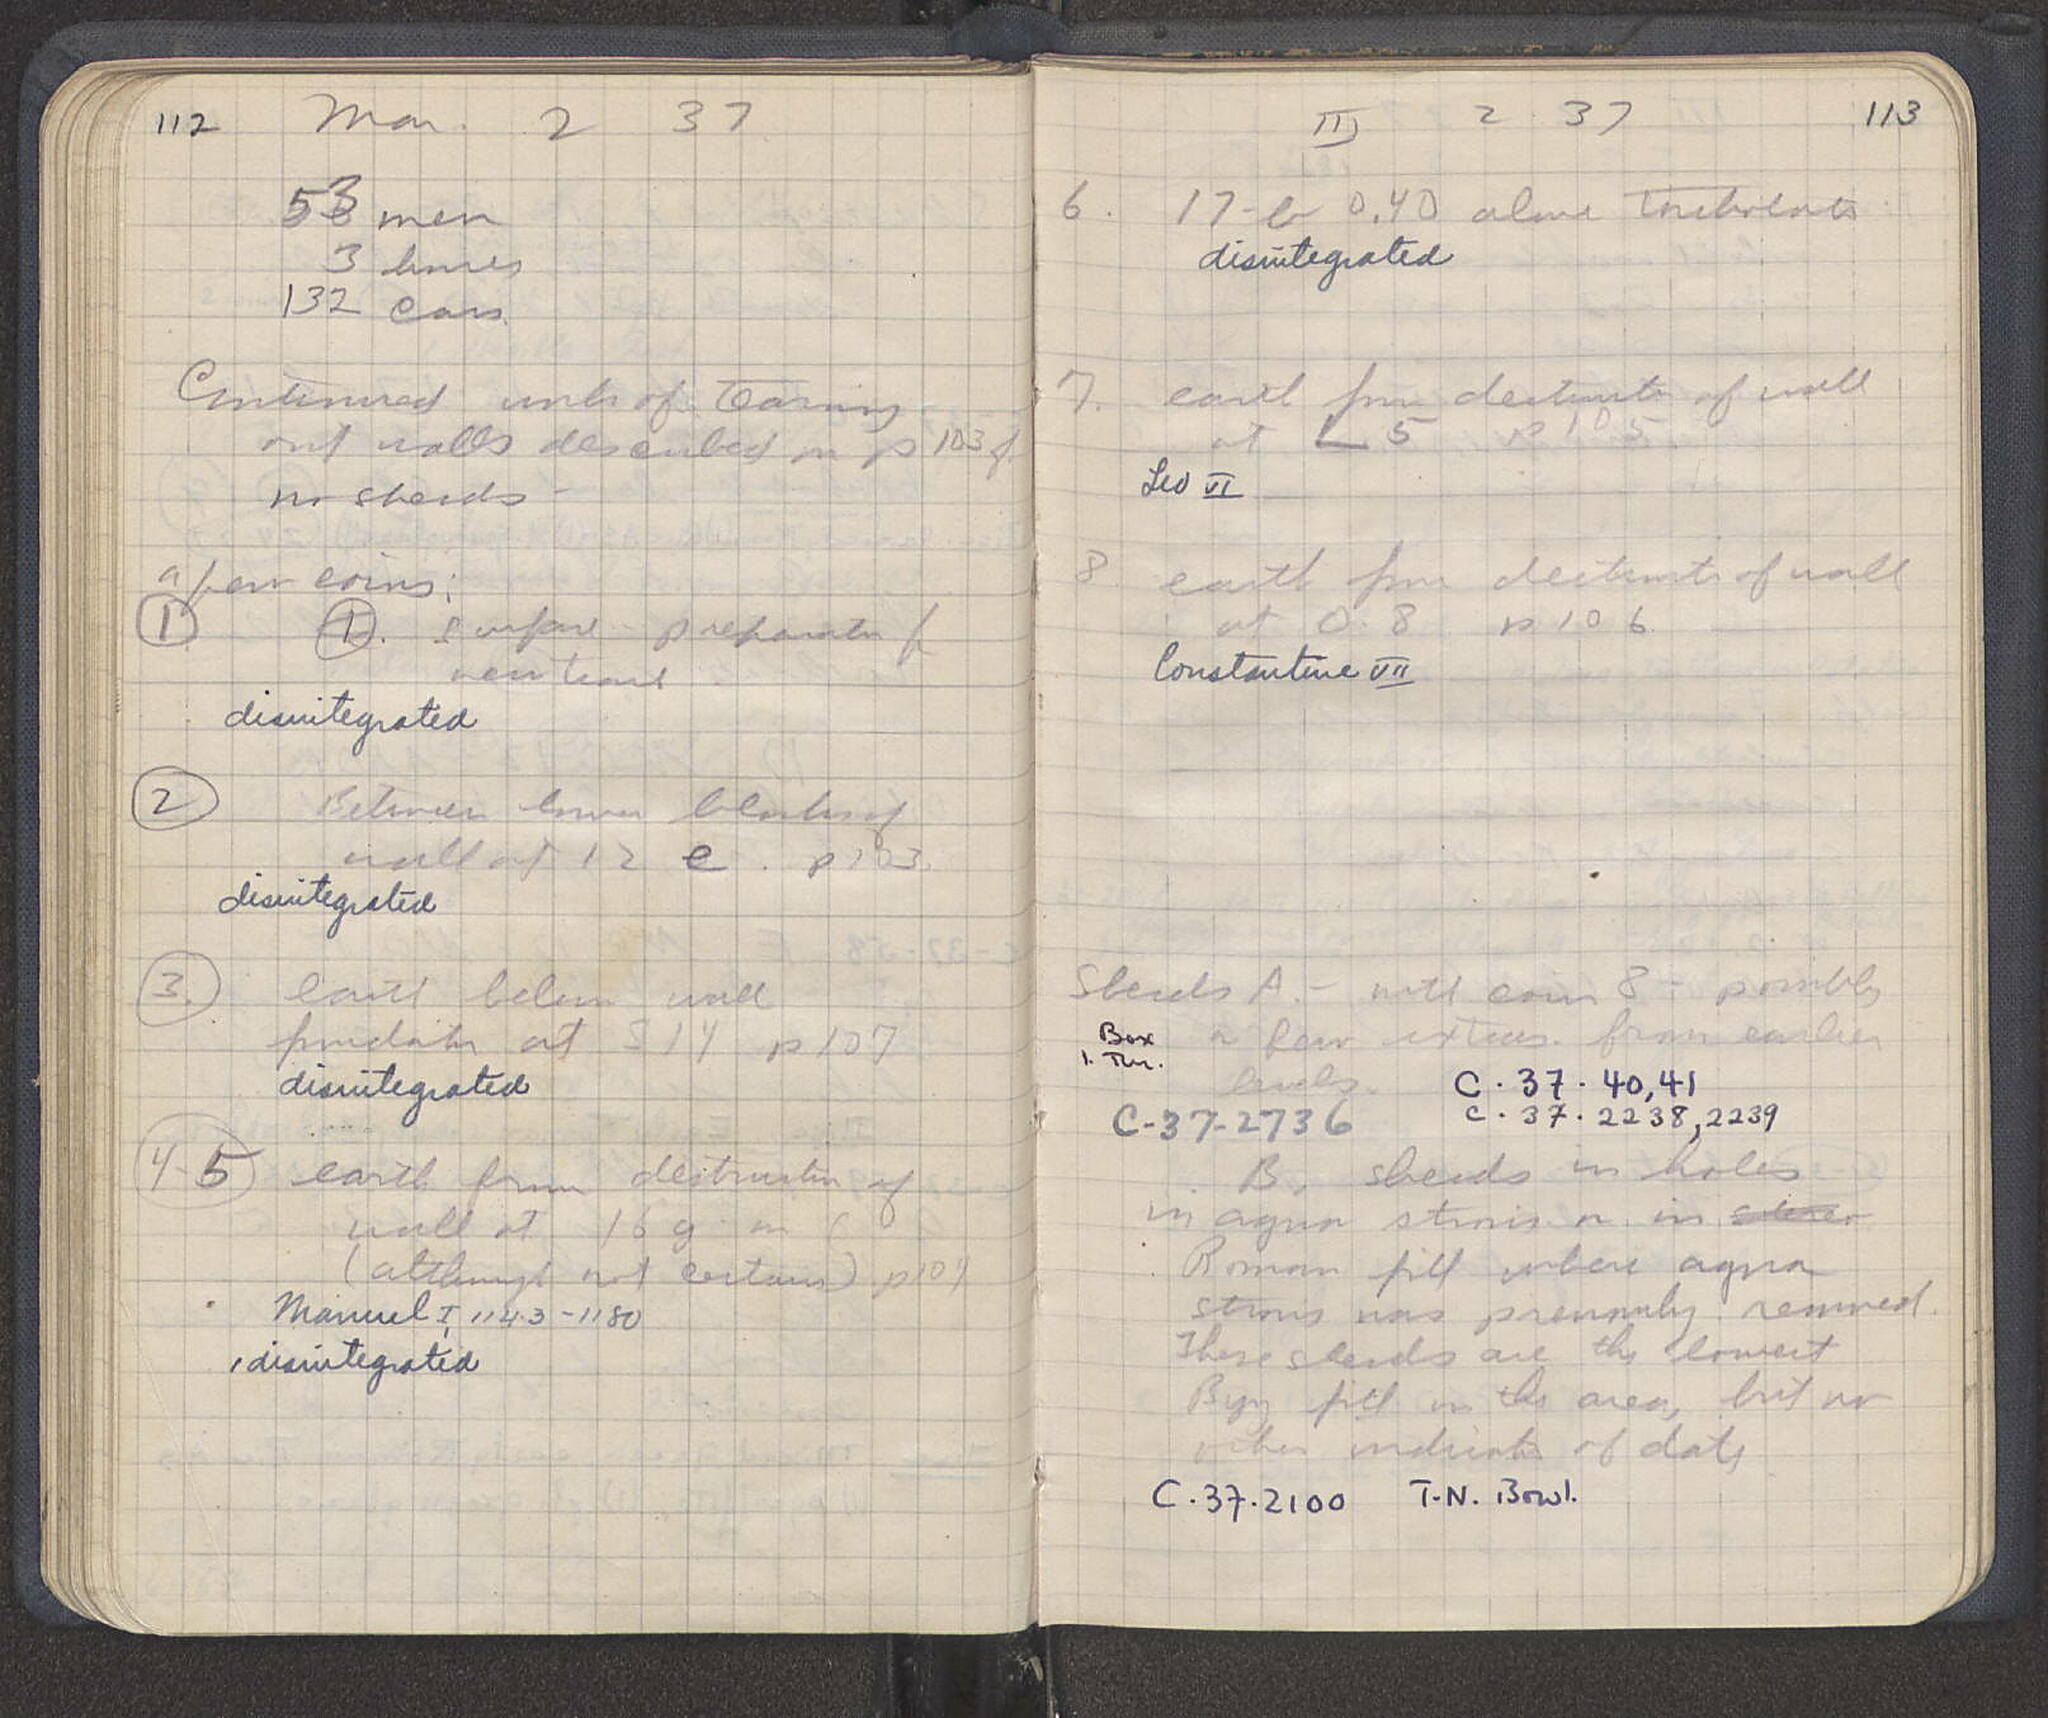 112 Mar. 2 37
53 men
3 horses
132 cars
Continued work of tearing
out walls described on p 103 f.
no sherds -
a few coins:
① 1. Surface - preparation f
new track
disintegrated
② Between lower blocks of
wall at 12 e. p 103.
disintegrated
3. earth below wall
foundation at S 14 p 107
disintegrated
4-5 earth from destruction of
wall at 16 g
(although not certain) p 104
Manuel I, 1143-1180
, disintegrated
III 2 37 113
6. 17-b 0.40 above
disintegrated
7. earth from destruction of wall
at L 5 p 105
Leo VI
8. earth from destruction of wall
at O. 8 p 106
Constantine VII
Sherds A. - with coin 8 - possibly
Box a few extras from earlier
1. Thr.
levels. C. 37. 40, 41
C-37-2736 C. 37. 2238, 2239
B. sherds in holes
in agora strosis or in
Roman fill where agora
strosis was previously removed.
These sherds are the lowest
Byz fill in the area, but no
other indicatn of date
C. 37. 2100 T.N. Bowl.